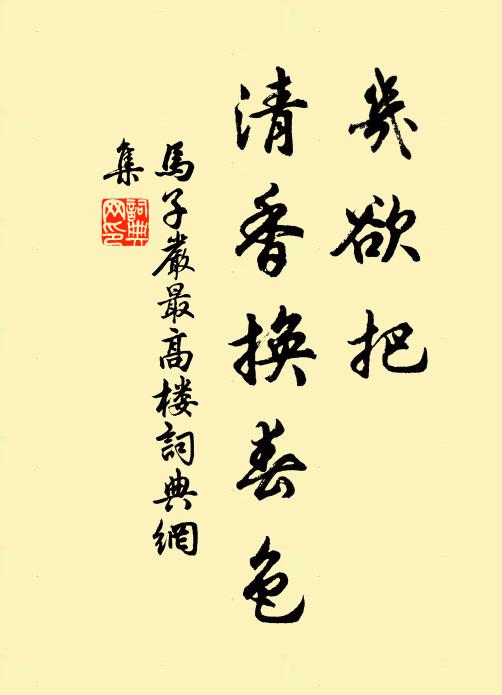 幾欲把
清香換春色
馬子嚴最高樓詞典網
集
詞典
网印